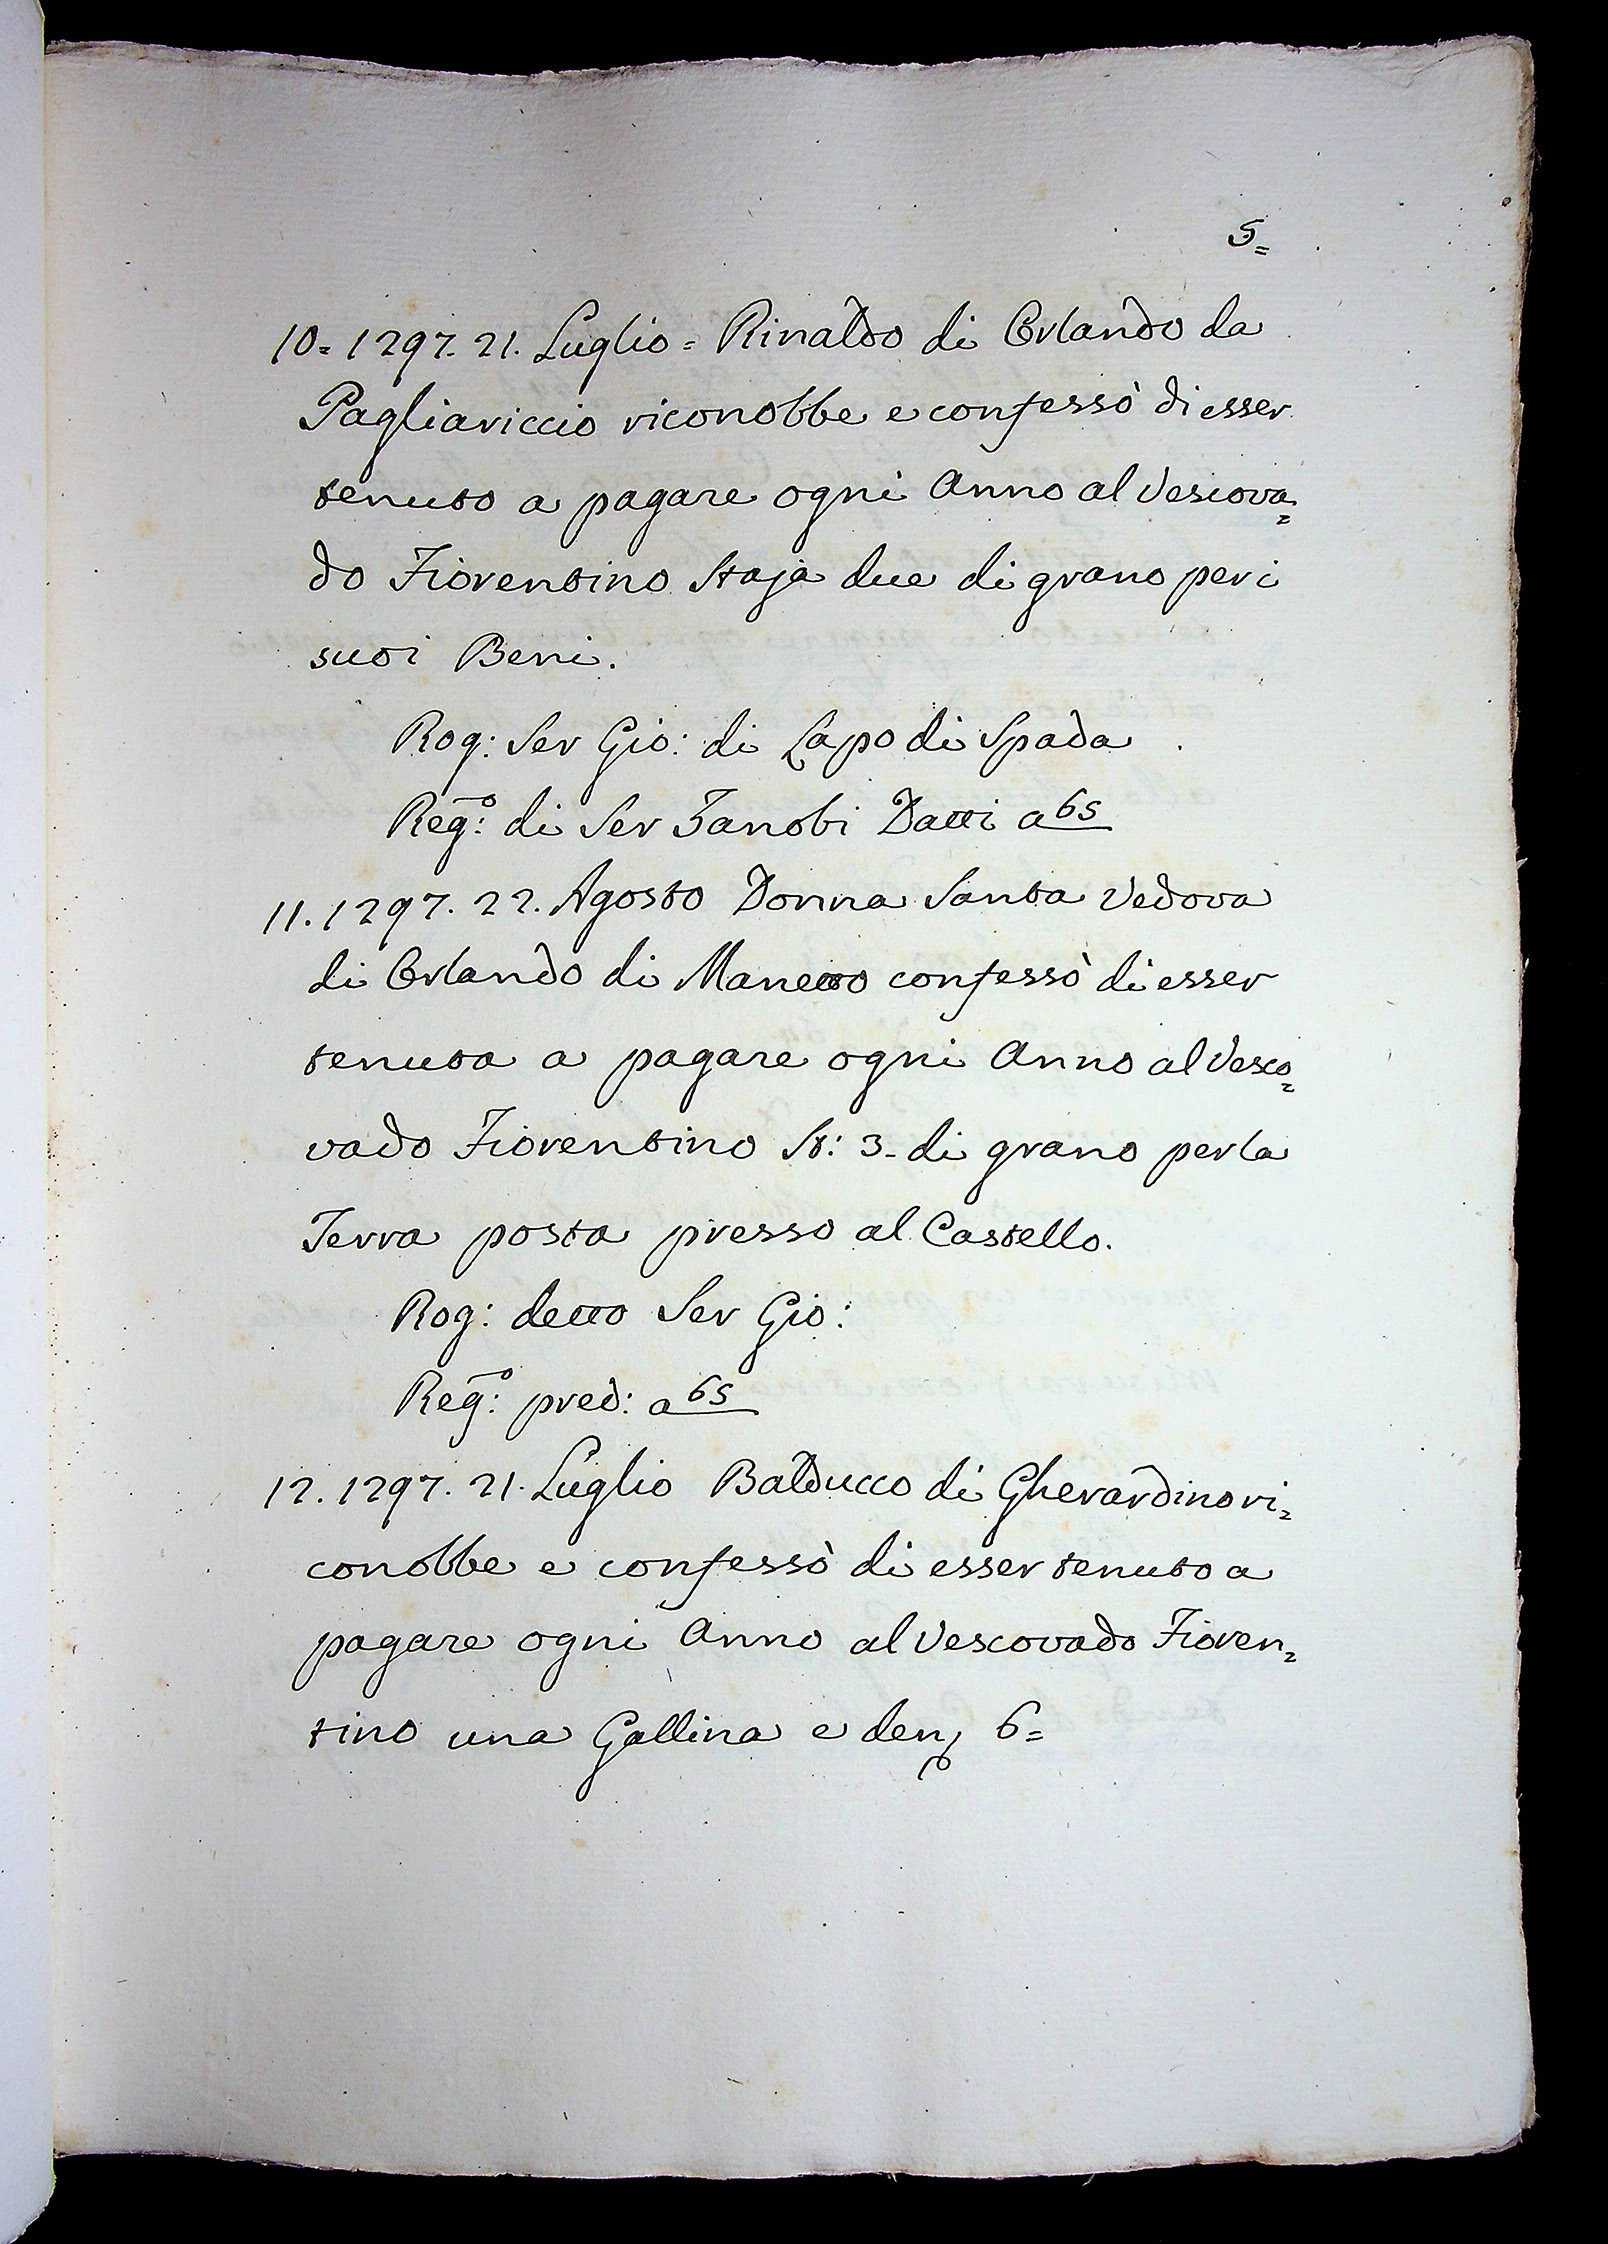 5=
10= 1297. 21. Luglio = Rinaldo di Orlando da
Pagliariccio riconobbe e confessò di esser
tenuto a pagare ogni Anno al Vescova=
do Fiorentino Staja due di grano per i
suoi Beni.
Rog: Ser Gio: di Lapo di Spada
Reg:o di Ser Zanobi Datti a 65
11. 1297. 22. Agosto Donna Santa Vedova
di Orlando di Manetto confessò di esser
tenuta a pagare ogni Anno al Vesco=
vado Fiorentino St: 3- di grano per la
Terra posta presso al Castello.
Rog: detto Ser Gio:
Reg:o pred: a 65
12. 1297. 21. Luglio Balducco di Gherardino ri=
conobbe e confessò di esser tenuto a
pagare ogni Anno al Vescovado Fioren=
tino una Gallina e den, 6=